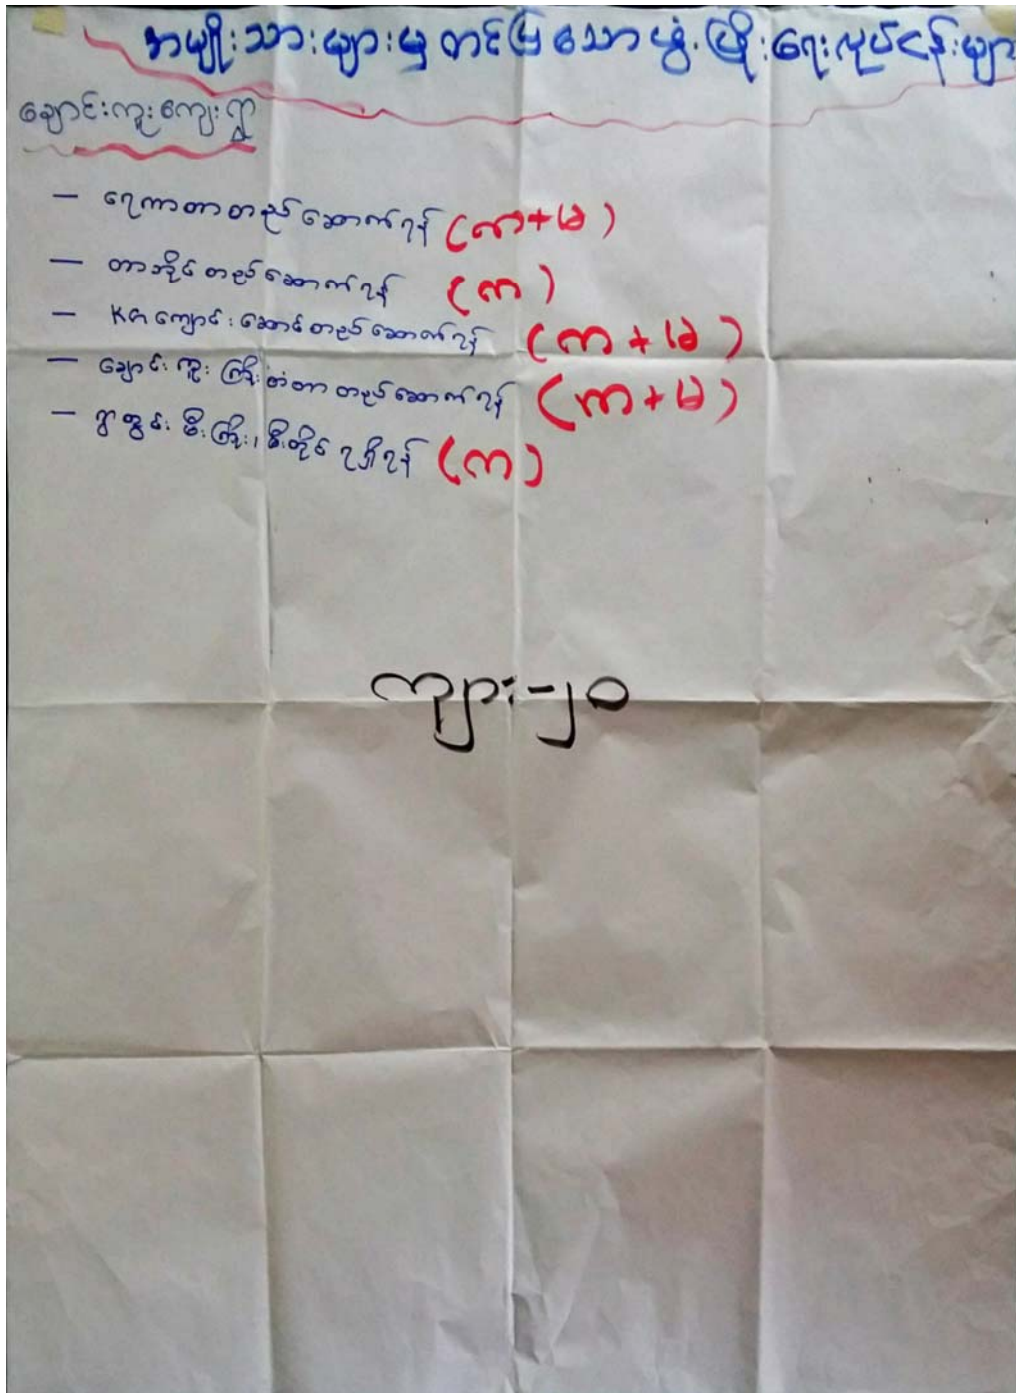 အမျိုးသားများမှ တင်ပြသော ဖွံ့ဖြိုးရေးလုပ်ငန်းများ
ချောင်းကူးကျေးရွာ
– ရေကာတာတည်ဆောက်ရန် (ကာ+မ)
– တာဘိုင်တည်ဆောက်ရန် (ကာ)
– KG ကျောင်းဆောင်တည်ဆောက်ရန် (ကာ+မ)
– ချောင်းကူးကြိုးတံတားတည်ဆောက်ရန် (ကာ+မ)
– ရွာတွင်းမီးကြိုး၊ မီးတိုင်ရရှိရန် (ကာ)
ကျား-၂၀